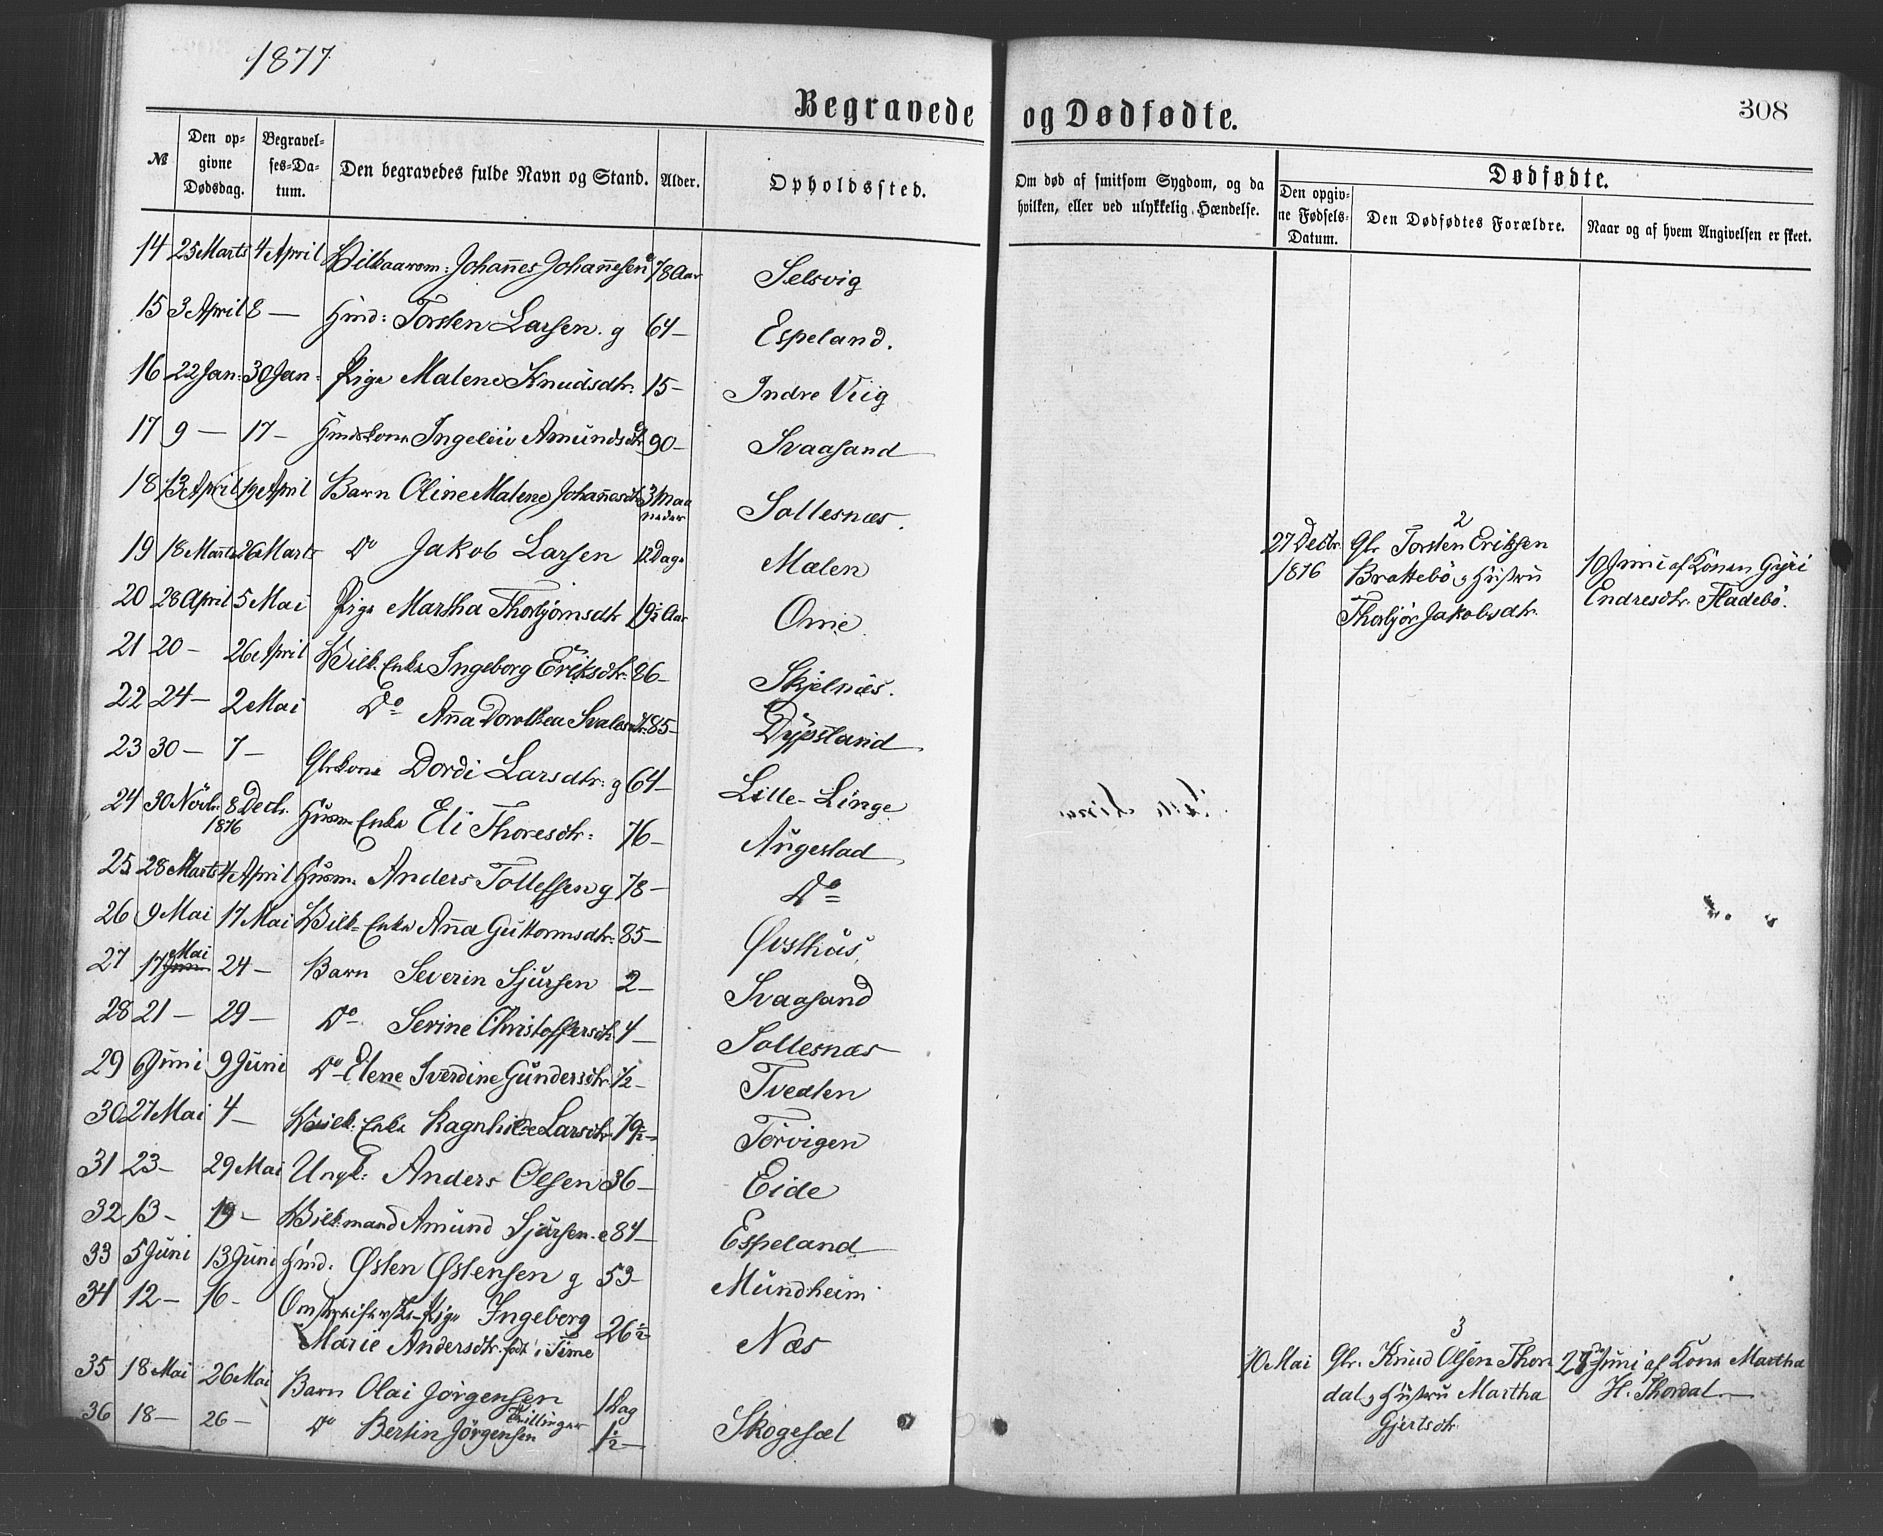 1877
308
Begravede og Dødfødte.
№ Den opgivne Dødsdag. Begravelses-Datum. Den begravedes fulde Navn og Stand. Alder. Opholdssted. Om død af smitsom Sygdom, og da hvilken, eller ved ulykkelig Hændelse.
Dødfødte.
Den opgivne Fødsels-Datum. Den Dødfødtes Forældre. Naar og af hvem Angivelsen er skeet.
14 25 Marts 4 April Johannes Johannesen 78 Aar Selsvig
15 3 April 8 — Torsten Larsen. g 64 — Espeland.
16 22 Jan: 30 Jan: Pige Malene Knudsdtr. 15 — Indre Viig
17 9 — 17 — Ingeleiv Amundsdtr 90 — Svaasand
18 13 April 19 April Barn Oline Malene Johannesdtr 3 Maaneder Sollesnæs.
19 18 Marts 26 Marts Do Jakob Larsen 12 Dage Mælen
20 28 April 5 Mai Pige Martha Thorbjørnsdtr 19½ Aar Ome
21 20 — 26 April Enke Ingeborg Eriksdtr. 86 — Skjelnæs.
22 24 — 2 Mai Do Anna Dorothea 85 — Dypsland
23 30 — 7 — Gbrkone Dordi Larsdtr. g 64 — Lille-Linge
24 30 Novbr. 8 Decbr. 1876 Husm. Enke Eli Thoresdtr: 76 — Augestad
25 28 Marts 4 April Husm. Anders Tollefsen g 78 — Do
26 9 Mai 17 Mai Enke Anna Guttormsdtr. 85 — Øvsthus,
27 17 Mai 24 — Barn Severin Sjursen 2 — Svaasand
28 21 — 29 — Do Serine Christoffersdtr 4 — Sollesnæs
29 6 Juni 9 Juni Do Elene Sverdine Gundersdtr ½ — Tvedten
30 27 Mai 4 — Enke Ragnhilde Larsdtr 79½ — Torvigen
31 23 — 29 Mai Ungk: Anders Olsen 36 — Eide
32 13 — 19 — Amund Sjursen. e 84 — Espeland
33 5 Juni 13 Juni Østen Østensen g 53 — Mundheim
34 12 — 16 — Pige Ingeborg
Marie Andersdtr. født i Time 26½ — Næs
35 18 Mai 26 Mai Barn Olai Jørgensen 1 Dag
36 18 — 26 — Do Bertin Jørgensen Tvillinger 1½ — Skogesæl
2
27 Decbr. 1876 Gbr. Torsten Eriksen
Brattebø og Hustru
Thorbjør Jakobsdtr.
10 Juni af Konen Gyri
Endresdtr. Fladebø.
3
10 Mai Gbr. Knud Olsen Thordal og Hustru Martha
Gjertsdtr.
Juni af Kone Martha
H. Thordal